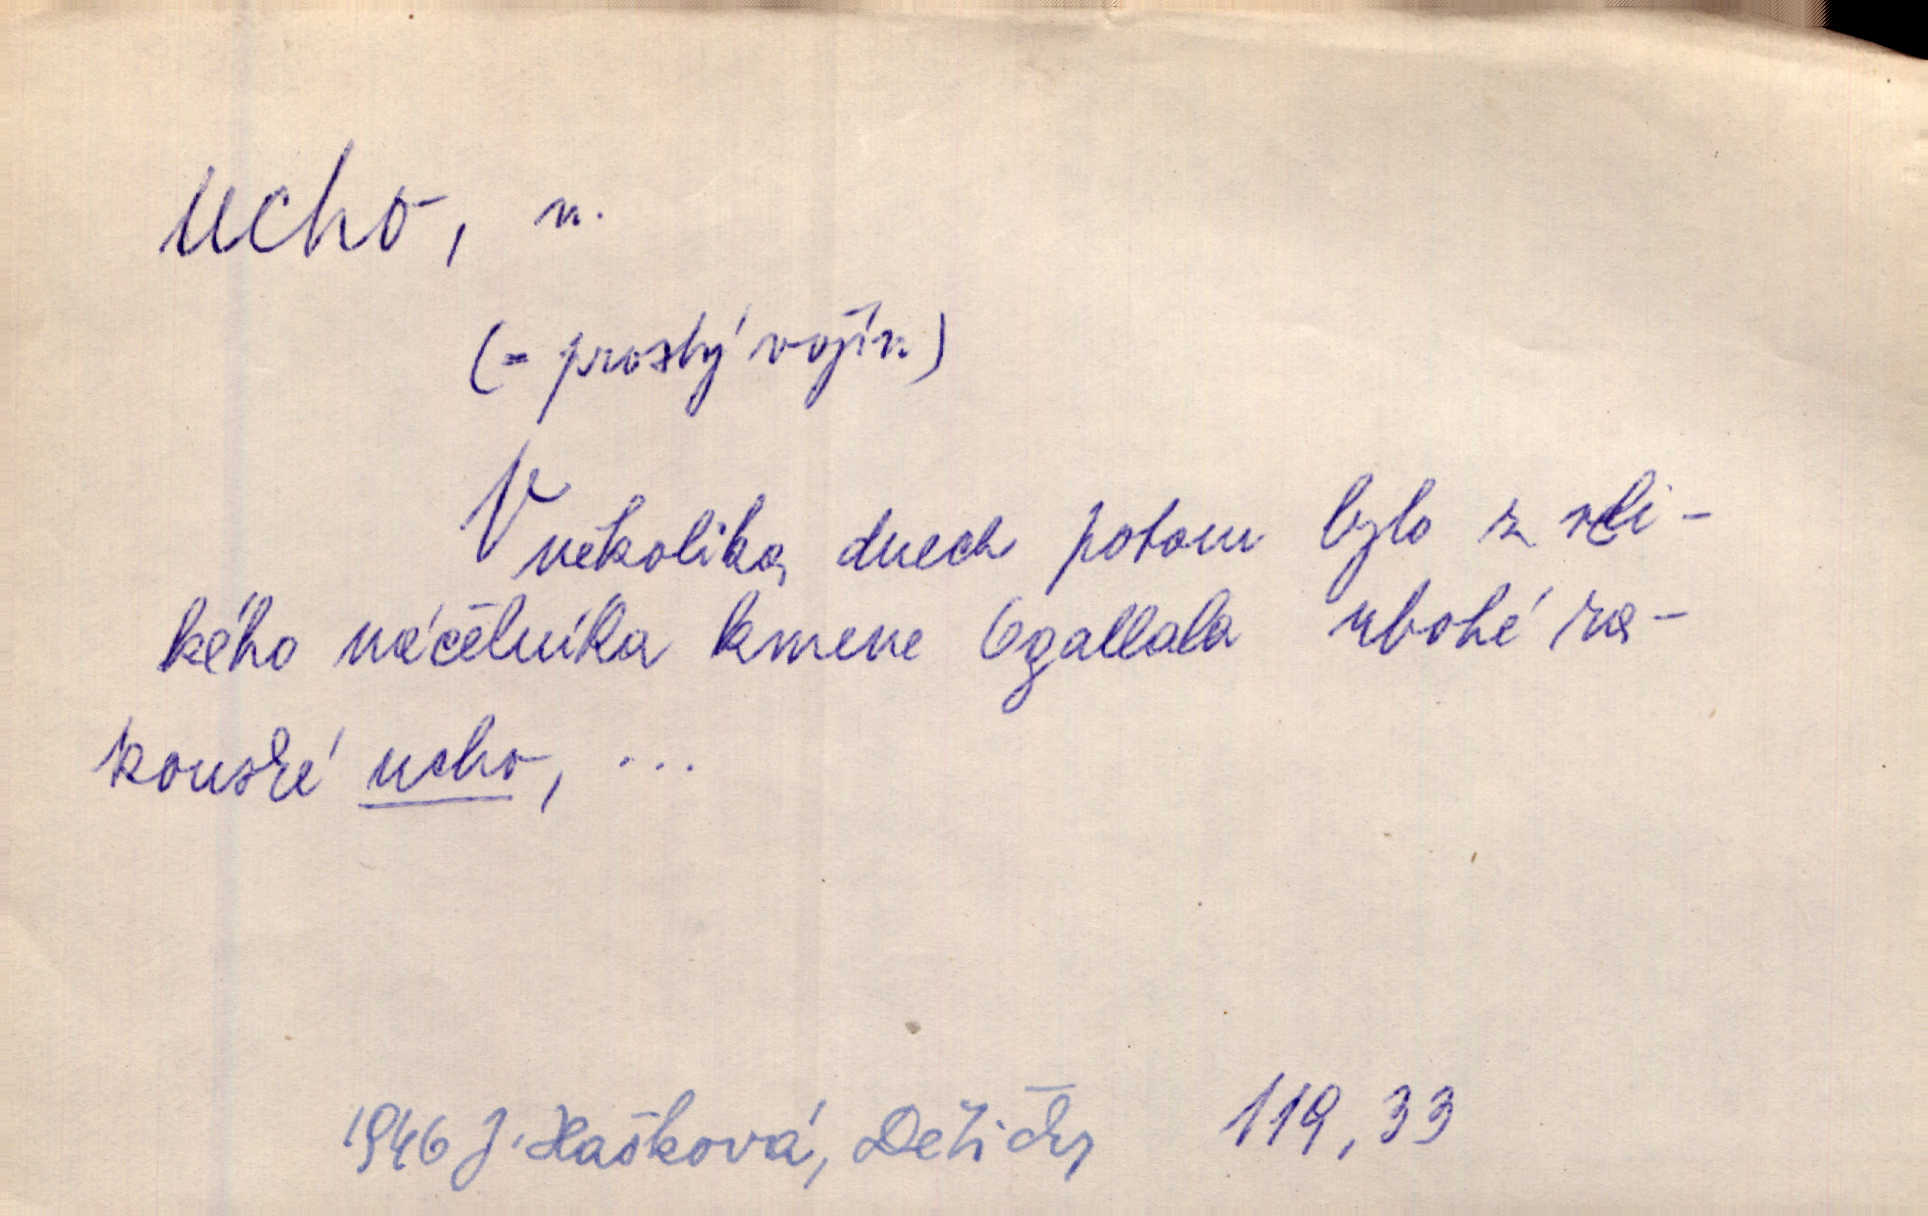 ucho, n.
(= prostý vojín)
V několika dnech potom bylo z veli-
kého náčelníka kmene Ogallala ubohé ra-
kouské ucho, ...
1946 J. Hašková, Dětičky 119, 33